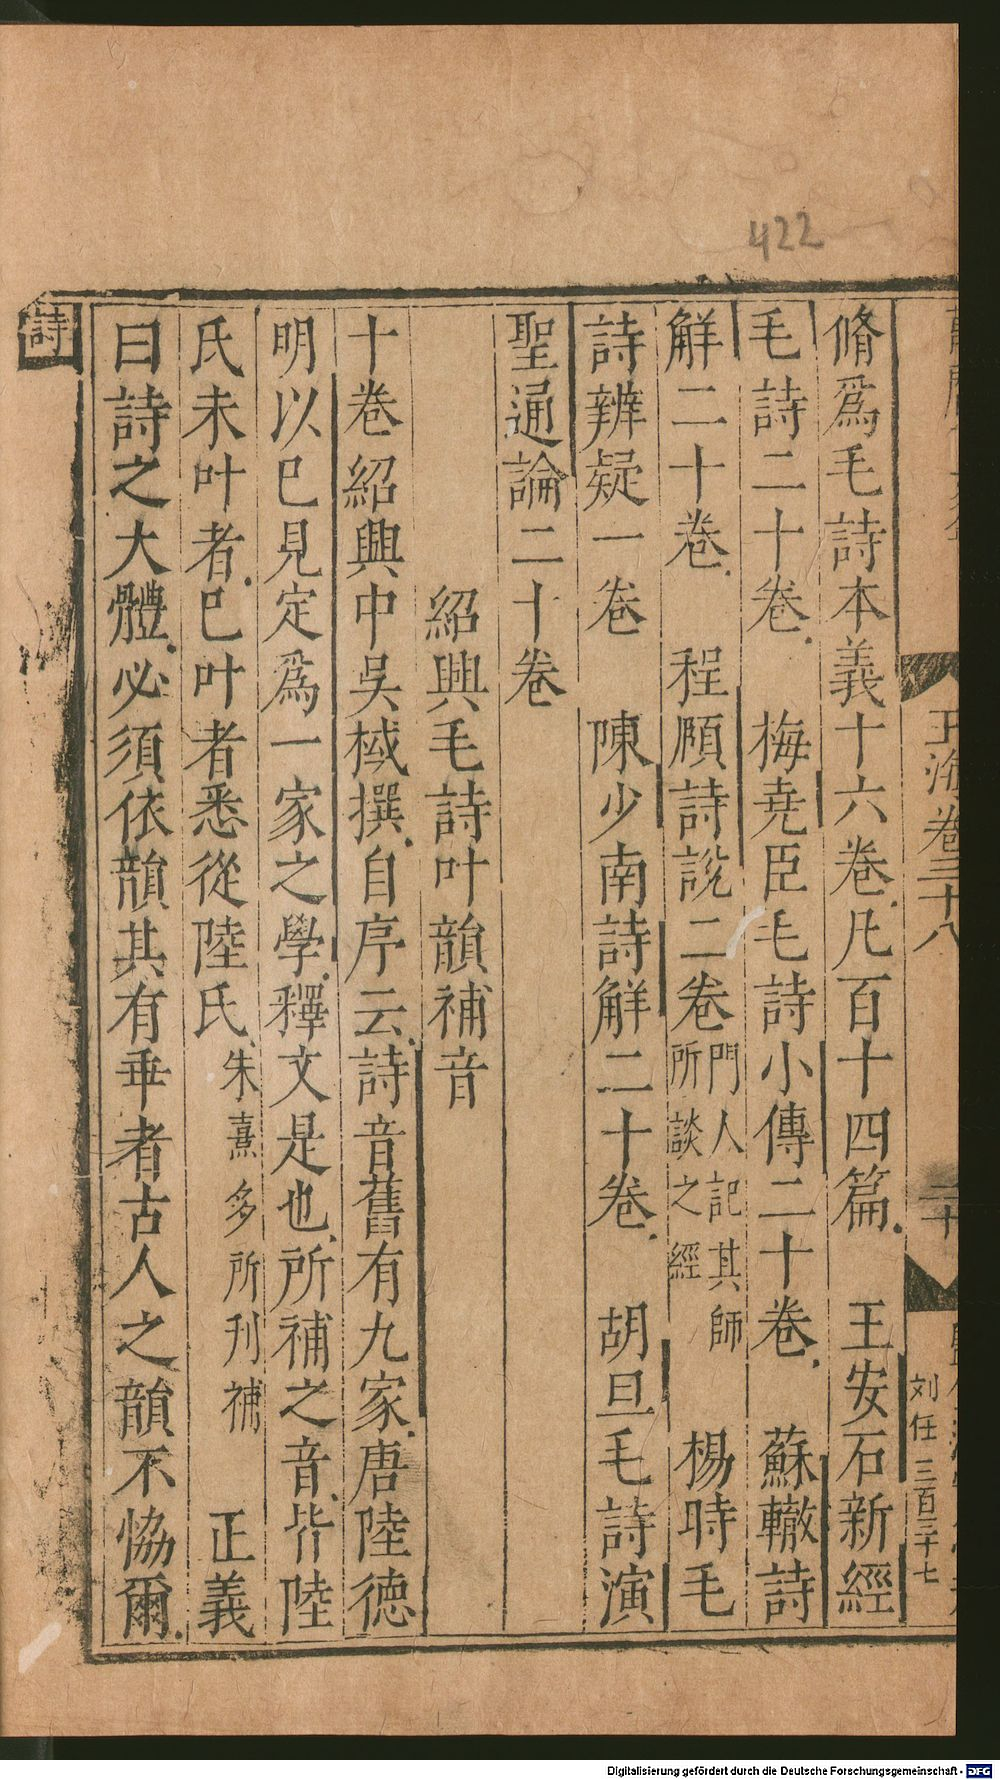 422
玉海卷三十八
二十
刘任 三百三十七
脩爲毛詩本義十六卷凡百十四篇 王安石新經
毛詩二十卷 梅堯臣毛詩小傳二十卷 蘇轍詩
解二十卷 程頤詩説二卷門人記其師所談之經 楊時毛
詩辨疑一卷 陳少南詩解二十卷 胡旦毛詩演
聖通論二十卷
紹興毛詩叶韻補音
十卷紹興中吴棫撰自序云詩音舊有九家唐陸德
明以已見定爲一家之學釋文是也所補之音皆陸
氏未叶者已叶者悉從陸氏朱熹多所刊補 正義
曰詩之大體必須依韻其有乖者古人之韻不恊爾
詩
Digitalisierung gefördert durch die Deutsche Forschungsgemeinschaft - DFG